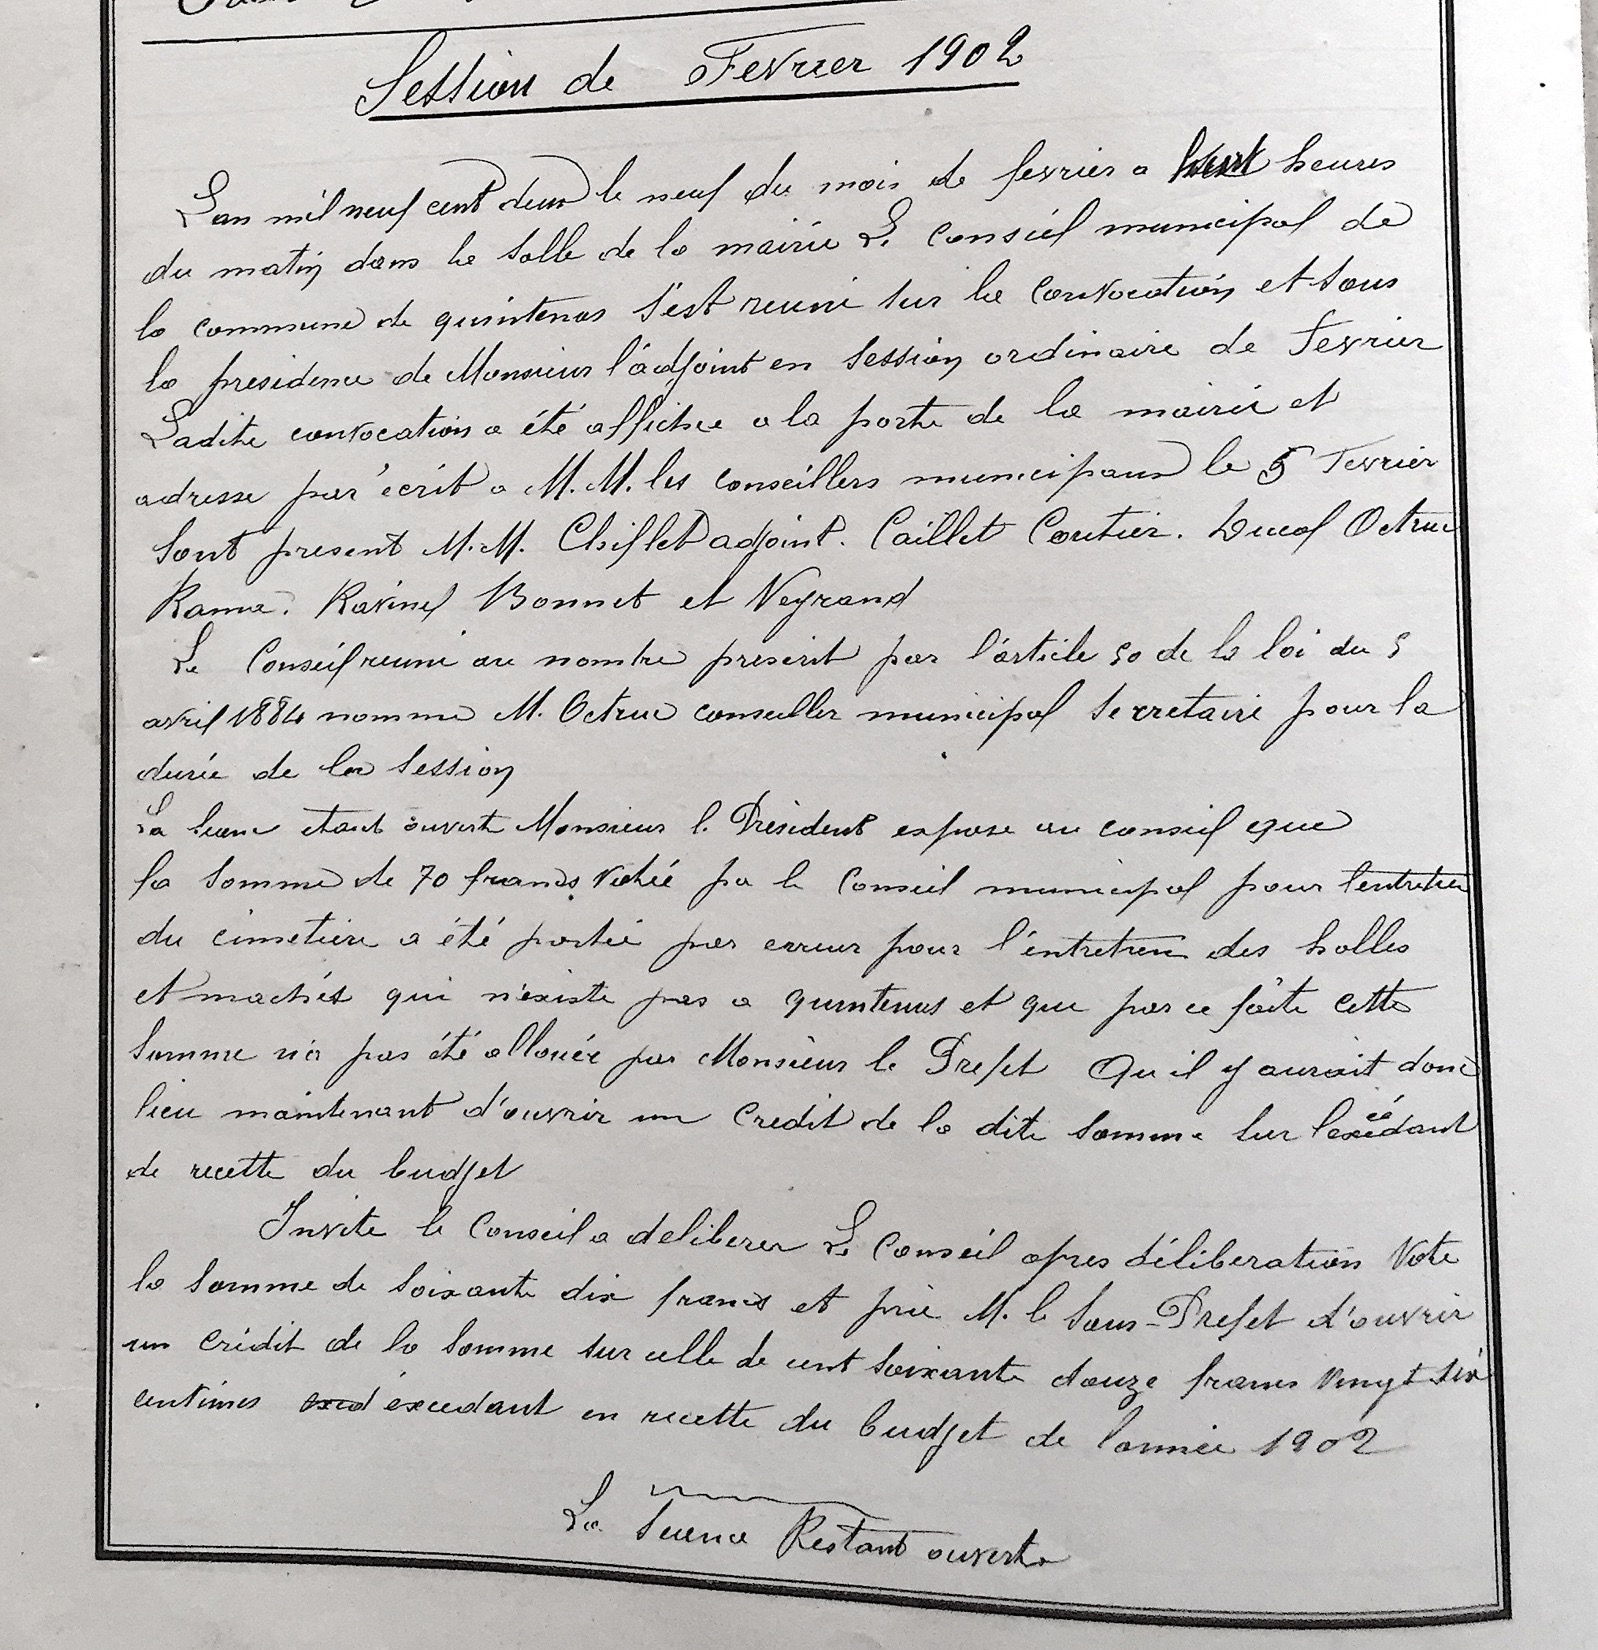 Session de Fevrier 1902
L'an mil neuf cent deux le neuf du mois de fevrier a huit heures
du matin dans la salle de la mairie Le Conseil municipal de
la commune de quintenas s'est reuni sur la convocation et sous
la presidence de Monsieur l'adjoint en session ordinaire de Fevrier
Ladite convocation a été affichee a la porte de la mairie et
adresse par écrit a M.M. les conseillers municipaux le 5 Fevrier
Sont present M.M. Chiflet adjoint. Caillet Coutier. Ducol Octruc
Rama. Ravinel Bonnet et Veyrand
Le Conseil reuni au nombre prescrit par l'article 50 de la loi du 5
avril 1884 nomme M. Octruc conseiller municipal secretaire pour la
durée de la session
La seance etant ouverte Monsieur le Président expose au conseil que
la somme de 70 francs votée pa le Conseil municipal pour l'entretien
du cimetiere a été portée par erreur pour l'entretien des halles
et machés qui n'existe pas a quintenas et que par ce faite cette
somme n'a pas été allouée par Monsieur le Prefet Qu'il y aurait donc
lieu maintenant d'ouvrir un credit de la dite somme sur l'excédant
de recette du budget
Invite le Conseil a deliberer Le Conseil apres déliberation Vote
la somme de soixante dix francs et prie M. le Sous-Prefet d'ouvrir
un crédit de la somme sur celle de cent soixante douze francs vingt six
centimes excedant en recette du budget de l'année 1902
La Seance Restant ouverte